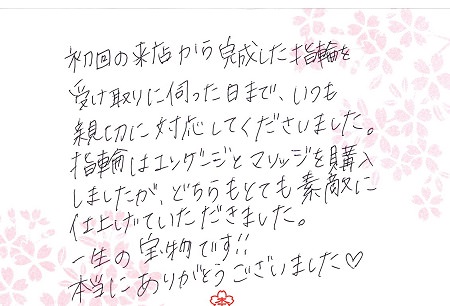 初回の来店から完成した指輪を
受け取りに伺った日まで、いつも
親切に対応してくださいました。
指輪はエンゲージとマリッジを購入
しましたが、どちらもとても素敵に
仕上げていただきました。
一生の宝物です!!
本当にありがとうございました♡